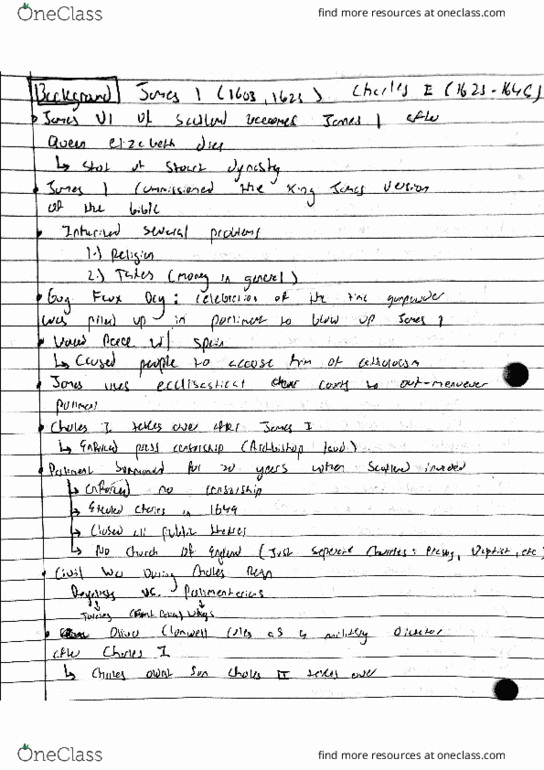 OneClass
find more resources at oneclass.com
Background James 1 (1603, 1625) Charles I (1625-1646)
James VI of Scotland becomes James 1 after
Queen Elizabeth dies
↳ Start of Stuart dynasty
James 1 Commissioned the King James version
of the bible
Inherited several problems
1.) Religion
2.) Taxes (money in general)
Guy Fawx Day: celebration of the time gunpowder
was piled up in parliment to blow up James 1
Peace w/ Spain
↳ Caused people to accuse him of catholocism
James uses court to out-maneuver
Parliment
Charles I takes over after James I
↳ Enforced press censorship (Archbishop Laud)
Parliment Summoned for 20 years when Scotland invaded
↳ Enforced no censorship
↳ Charles in 1649
↳ Closed all public theatres
↳ No Church of England (Just Seperate Churches: Presby, Baptist, etc)
Civil War During Charles Reign
Royalists vs. Parlimentarians
↓ ↓
Tories Whigs
Oliver Cromwell rules as a military Dictator
after Charles I
↳ Charles Son Charles II takes over
OneClass
find more resources at oneclass.com